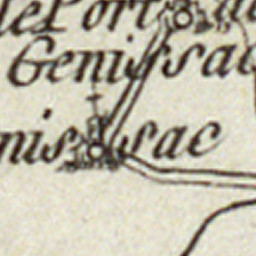 le Port
Genissac
nissac